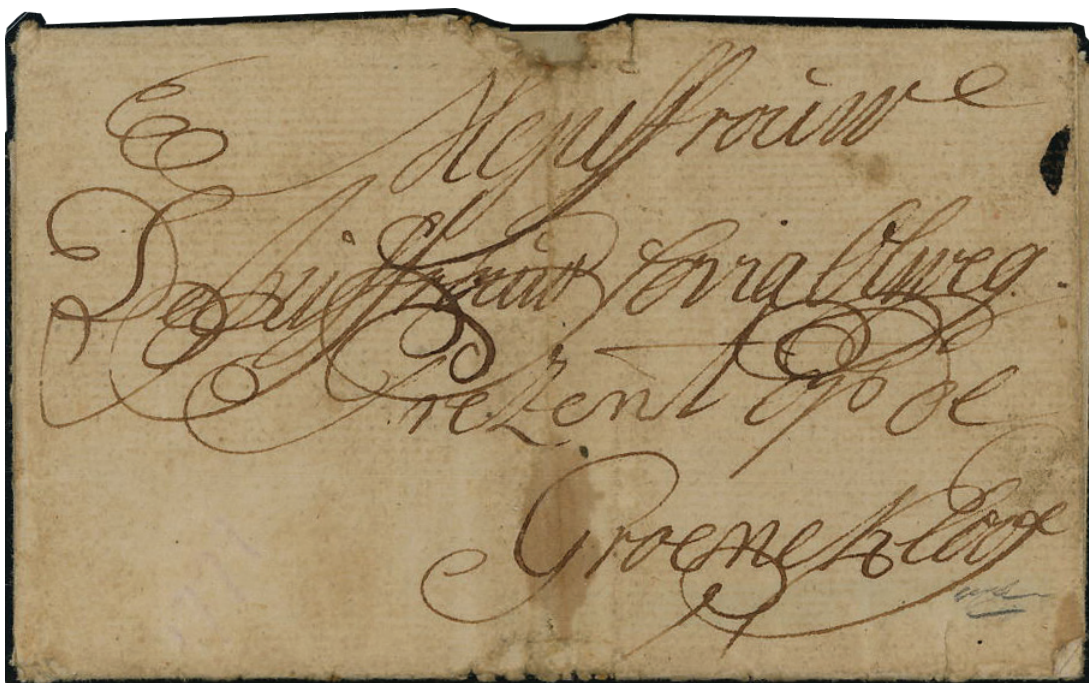 Mejuffrouw
De Juffrouw Sovia Olweg
Prezent op de
Groene Kloof